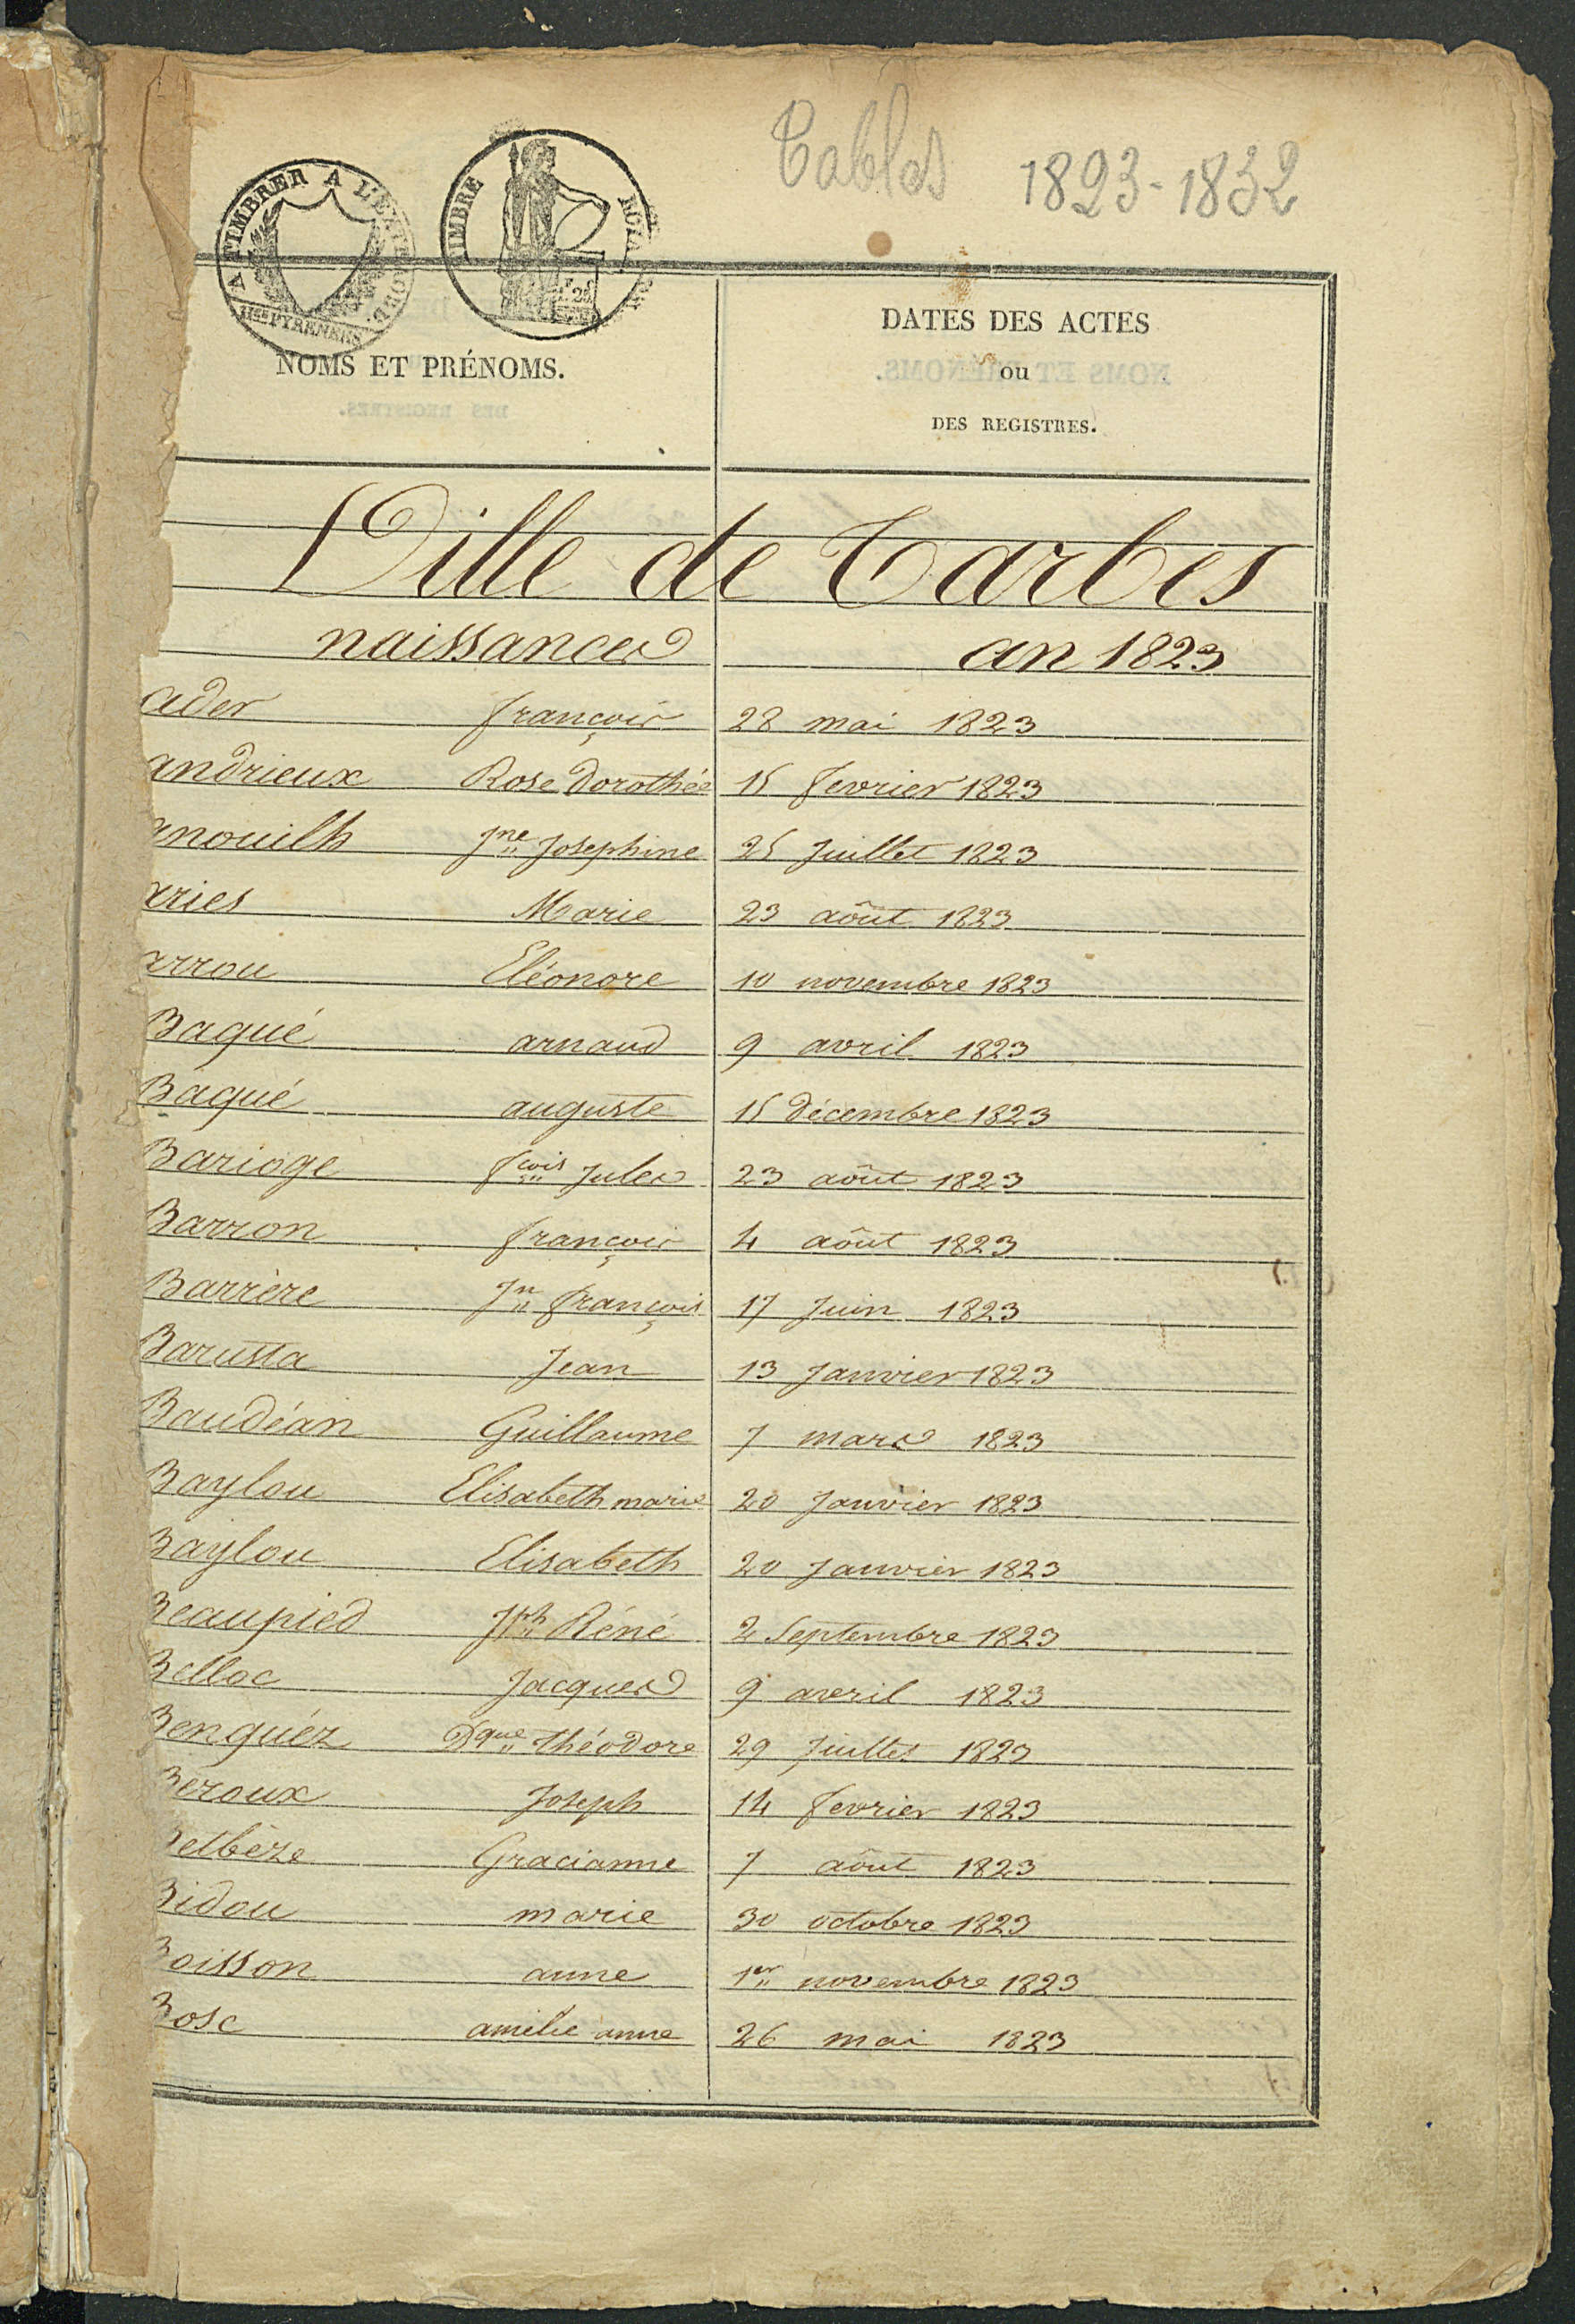 Tables 1823-1832
A TIMBRER A L'EXTRAORD.
H.tes PYRENEES
TIMBRE ROYAL
NOMS ET PRÉNOMS.
DATES DES ACTES
ou
DES REGISTRES.
Ville de Tarbes
naissances an 1823
ader françois 28 mai 1823
andrieux Rose Dorothée 15 fevrier 1823
anouilh Jne Josephine 25 Juillet 1823
aries Marie 23 aôut 1823
arrou Eléonore 10 novembre 1823
Baqué arnaud 9 avril 1823
Baqué auguste 15 décembre 1823
Barioge fcois Jules 23 aôut 1823
Barron françois 4 aôut 1823
Barrère Jn françois 17 Juin 1823
Barusta Jean 13 Janvier 1823
Baudéan Guillaume 7 mars 1823
Baylou Elisabeth marie 20 Janvier 1823
Baylou Elisabeth 20 Janvier 1823
Beaupied Jph Réné 2 Septembre 1823
Belloc Jacques 9 avril 1823
Benguéz Dque théodore 29 Juillet 1823
Beroux Joseph 14 fevrier 1823
Betbèze Gracianne 7 aôut 1823
Bidou marie 30 octobre 1823
Boisson anne 1er novembre 1823
Bosc amelie anne 26 mai 1823